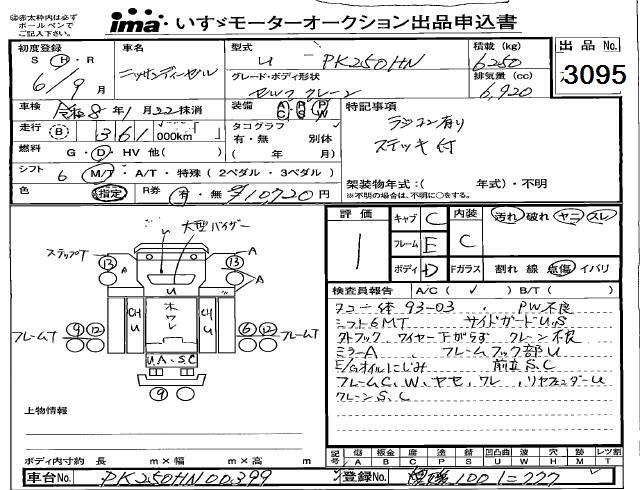 ◎赤太枠内は必ず
ボールペンで
ご記入下さい。
ima いすゞモーターオークション出品申込書
初度登録 車名 型式 U- PK250HN 積載 (kg) 6250 出品 No.
S・H・R 6/9月 ニッサンディーゼル グレード・ボディ形状 セルフクレーン 排気量 (cc) 6,920 3095
車検 令和8年1月22 抹消 装備 A/C P/S P/W 特記事項
走行 (B) 361 000km タコグラフ ラジコン有り
有・無 別体 ステッキ付
燃料 G・D・HV 他( ) ( 年 月)
シフト 6 M/T・A/T・特殊(2ペダル・3ペダル) 架装物年式:( 年式)・不明
色 指定 R券 有・無 ¥10,720円 ※不明の場合は、不明に○をする。
評価 1 キャブ C 内装 C 汚れ 破れ ヤニ スレ
フレーム E
ボディ D Fガラス 割れ 線 点傷 イバリ
大型バイザー
ステップT 13 13 A
A A
U
CH U 木ワレ CH U
フレームT 9 12 6 12 フレームT
UA、S.C
9
検査員報告 A/C( ✓ ) B/T( )
タコ一体 93-03 . PW不良
シフト6MT サイドガードU,S
ワイヤー下がらず クレーン不良
ミラーA、 フレームフック部U
E/Gオイルにじみ S.C
フレームC、W、ヤセ、ワレ、リヤフェンダーU
クレーンS、C
上物情報
記号 傷 板金 腐 塗 錆 凹凸曲 波 穴 跡 レツ割
A B C P S U W H M T
ボディ内寸約 長 m×幅 m×高 m
車台No. PK250HN00399 登録No. 100 1-227